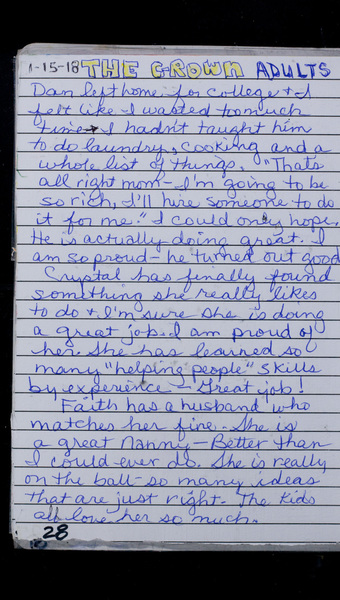 1-15-18 THE GROWN ADULTS
Dan left home for college & I
felt like I wasted too much
time → I hadn't taught him
to do laundry, cooking and a
whole list of things. "Thats
all right mom - I'm going to be
so rich, I'll hire someone to do
it for me." I could only hope.
He is actually doing great. I
am so proud - he turned out good
Crystal has finally found
something she really likes
to do & I'm sure she is doing
a great job. I am proud of
her. She has learned so
many "helping people" skills
by experience - Great job!
Faith has a husband who
matches her fine. She is
a great Nanny - Better than
I could ever do. She is really
on the ball - so many ideas
that are just right. The kids
all love her so much.
28